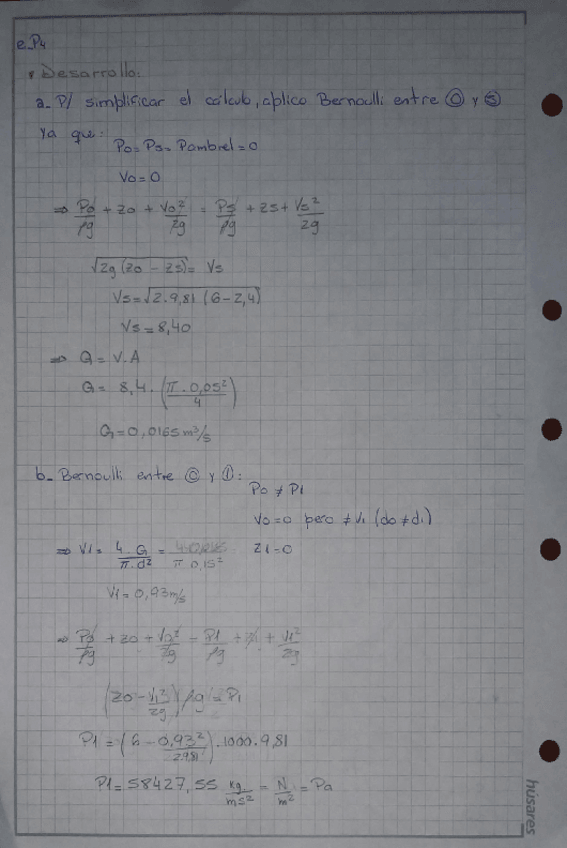 e.P4
* Desarrollo:
a- P/ simplificar el cálculo, aplico Bernoulli entre ⓪ y ⑤
Ya que:
P0 = P5 = Pambrel = 0
V0 = 0
⇒ P0/ρg + z0 + V0²/2g = P5/ρg + z5 + V5²/2g
√2g (z0 - z5) = V5
V5 = √2.9,81 (6-2,4)
V5 = 8,40
⇒ Q = V.A
Q = 8,4. (π.0,05²/4)
Q = 0,0165 m³/s
b- Bernoulli entre ⓪ y ①:
P0 ≠ P1
V0 = 0 pero ≠ V1 (d0 ≠ d1)
⇒ V1 = 4.Q/π.d² = 4.0,0165/π 0,15² z1 = 0
V1 = 0,93 m/s
⇒ P0/ρg + z0 + V0²/2g = P1/ρg + z1 + V1²/2g
(z0 - V1²/2g) ρg = P1
P1 = (6 - 0,93²/2.9,81) . 1000 . 9,81
P1 = 58427,55 kg/ms² = N/m² = Pa
húsares